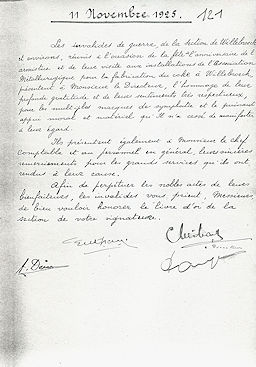 11 Novembre 1925. 121
Les invalides de guerre, de la section de Willebroeck
et environs, réunis à l'occasion de la fête l'anniversaire de
armistice et de leur visite aux installations de l'Association
Métallurgique pour la fabrication du coke à Willebroeck,
présentent à Monsieur le Directeur, l'hommage de leur
profonde gratitude et de leurs sentiments très respectueux,
pour les multiples marques de sympathie et le puissant
appui moral et matériel qu'il n'a cessé de manifester
à leur égard.
Ils présentent également à Monsieur le chef
Comptable et au personnel en général, leurs sincères
remerciements pour les grands services qu'ils ont
rendus à leur cause.
Afin de perpétuer les nobles actes de leurs
bienfaiteurs, les invalides vous prient, Messieurs
de bien vouloir honorer le livre d'or de la
section de votre signature.